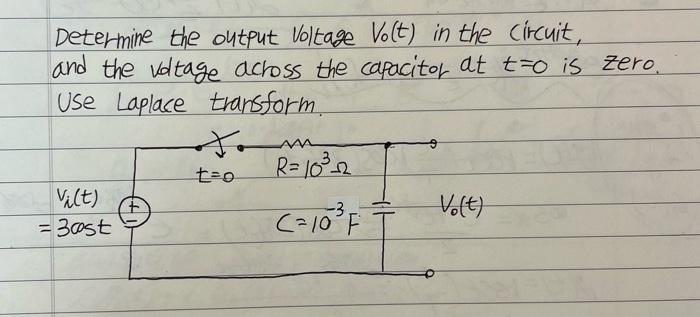 Determine the output Voltage Vo(t) in the circuit,
and the voltage across the capacitor at t=0 is zero.
Use Laplace transform.
t=0
R=10³Ω
Vi(t)
=3cost
+
−
C=10⁻³F
Vo(t)